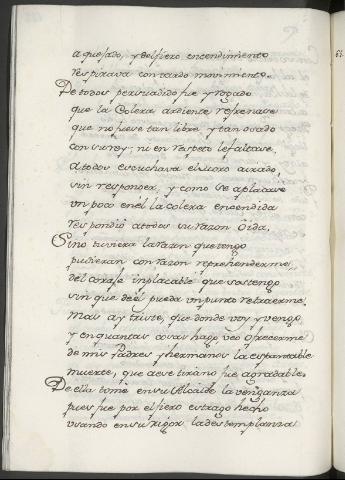 aquejado, y del fiero encendimiento
respirava con tardo movimiento.
De todos persuadido fue y rogado
que la Colera ardiente refrenase
que no fuese tan libre y tan osado
con su rey; ni en respeto le faltase,
a todos escuchava el moro airado,
sin responder, y como se aplacase
un poco en el la colera encendida
respondió a todos su razon oida,
Si no tuviera la razon que tengo
pudieran con razon reprehenderme,
del coraje inplacable que sostengo
sin que deel pueda un punto retraerme.
Mas ay triste, que donde voy y vengo,
y en quantas cosas hago veo ofrecerme
de mis Padres y hermanos la espantable
muerte, que a ese tirano fue agradable.
De ella tomè en su Alcaide la venganza
pues fue por el fiero estrago hecho
usando en su rigor la destemplanza